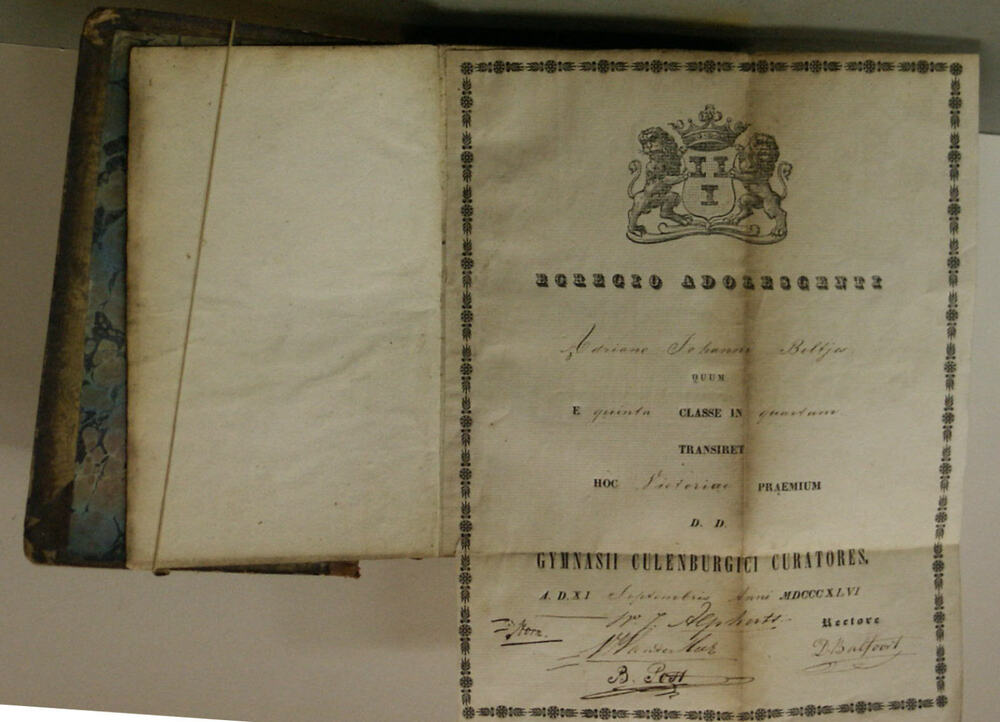 EGREGIO ADOLESCENTI
Adriano Johanni Beltjes
QUUM
E quinta CLASSE IN quartam
TRANSIRET
HOC Victoriae PRAEMIUM
D. D.
GYMNASII CULENBURGICI CURATORES.
A. D. XI Septembris Anni MDCCCXLVI
Rectore
B. Post